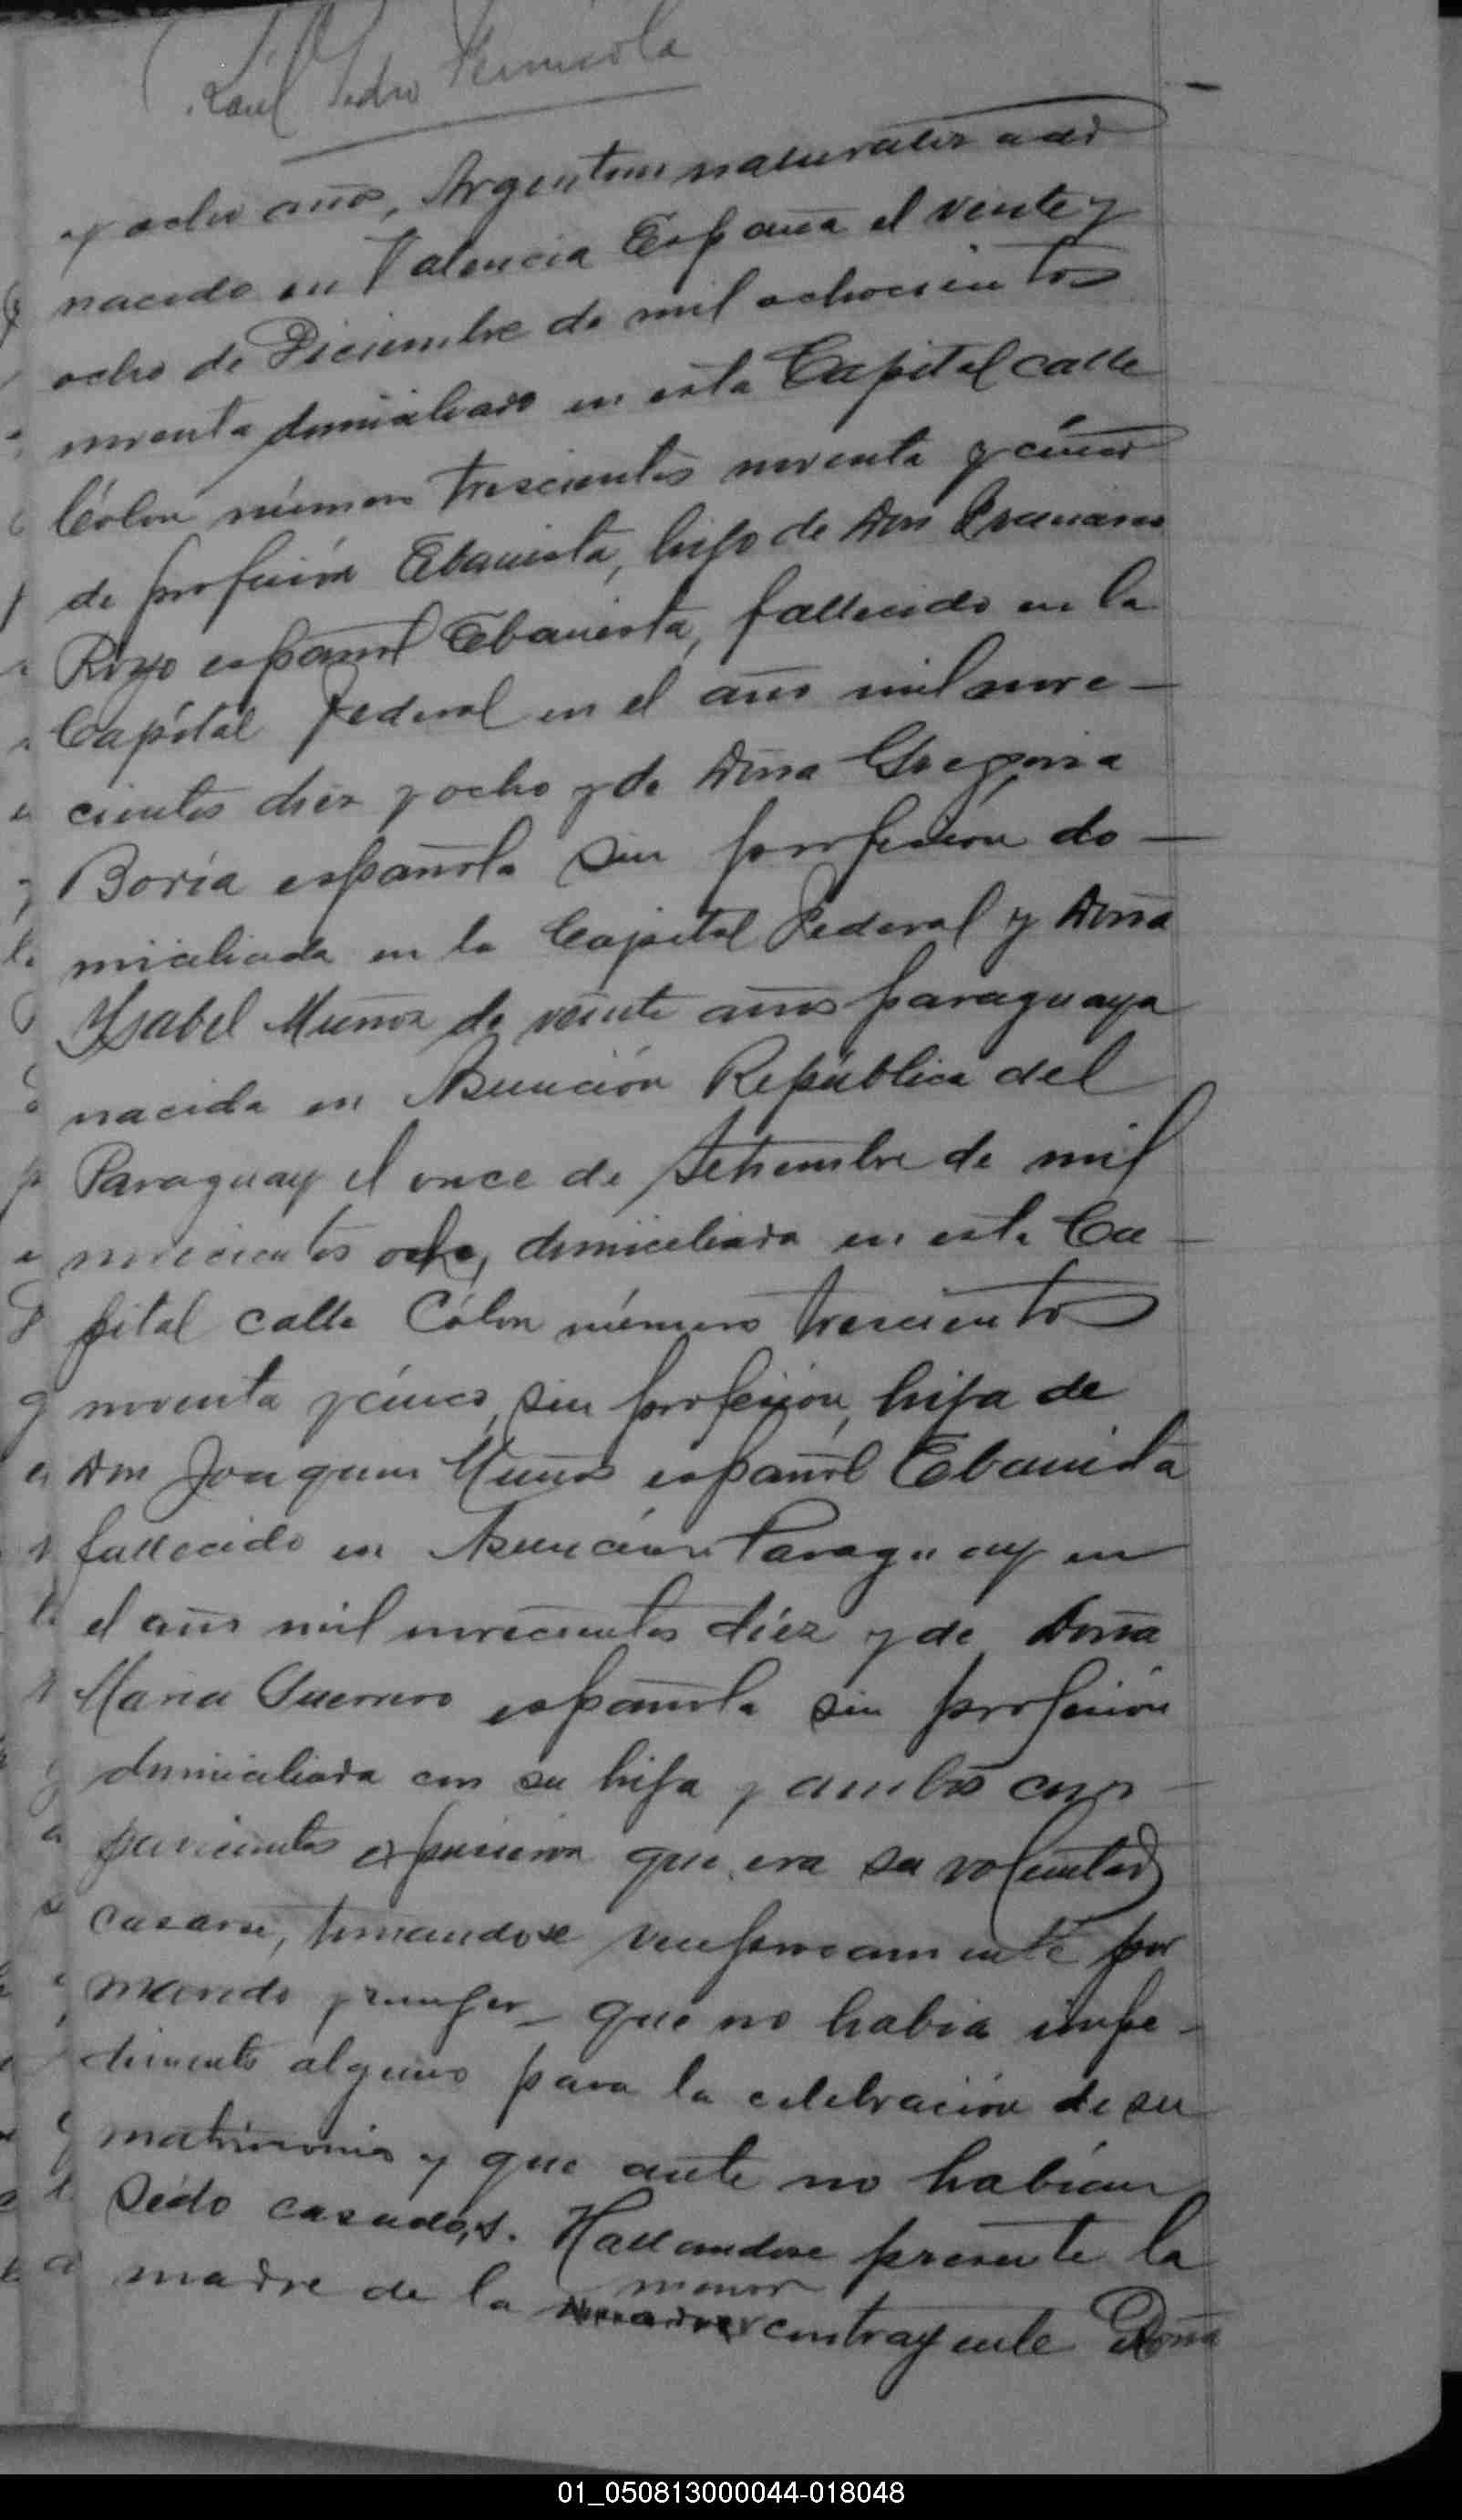 Raúl Pedro
y ocho años, Argentino naturalizado
nacido en Valencia España el veinte y
ocho de Diciembre de mil ochocientos
noventa domiciliado en esta Capital calle
Cólon número trescientos noventa y cinco
de profesión Ebanista, hijo de Don Francisco
Royo español Ebanista, fallecido en la
Capital Federal en el año mil nove-
cientos diez y ocho y de Doña Gregoria
Boria española sin profesión do-
miciliada en la Capital Federal y Doña
Ysabel Muñoz de veinte años paraguaya
nacida en Asunción República del
Paraguay el once de Setiembre de mil
novecientos ocho, domiciliada en esta Ca-
pital calle Cólon número trescientos
noventa y cinco, sin profesión, hija de
Don Joaquin Muñoz español Ebanista
fallecido en Asunción Paraguay en
el año mil novecientos diéz y de Doña
Maria Guerrero española sin profesión
domiciliada con su hija y ambos com-
parecientes expusieron que era su voluntad
casarse, tomandose reciprocamente por
marido y mujer_ que no habia impe-
dimento alguno para la celebración de su
matrimonio y que ante no habían
sido casados. Hallandose presente la
madre de la menor contrayente Doña
01_050813000044-018048